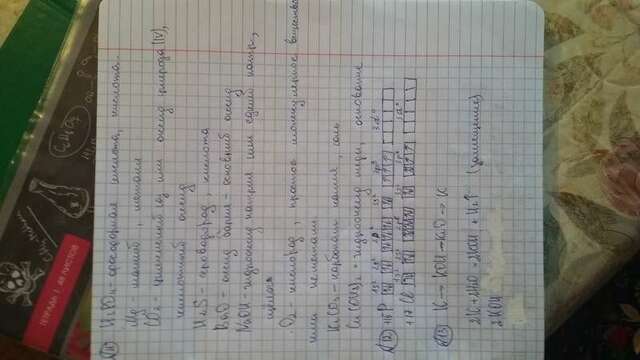 ТЕТРАДЬ, 48 ЛИСТОВ
C₂H₅O₇
11) H₃PO₄ - ортофосфорная кислота, кислота.
Mg - магний, металл
CO₂ - углекислый газ или оксид углерода (IV),
кислотный оксид
H₂S - сероводород, кислота
BaO - оксид бария - основный оксид
NaOH - гидроксид натрия или едкий натр,
щелочь
O₂ - кислород, простое молекулярное вещество
неметалл.
K₂CO₃ - карбонат калия, соль
Cu(OH)₂ - гидроксид меди, основание
12) +15 P 1s² 2s² 2p⁶ 3s² 3p³ 3d⁰
+17 Cl 1s² 2s² 2p⁶ 3s² 3p⁵ 3d⁰
№13) K → KOH → K₂O → K
2K + 2H₂O = 2KOH + H₂↑ (замещение)
2KOH